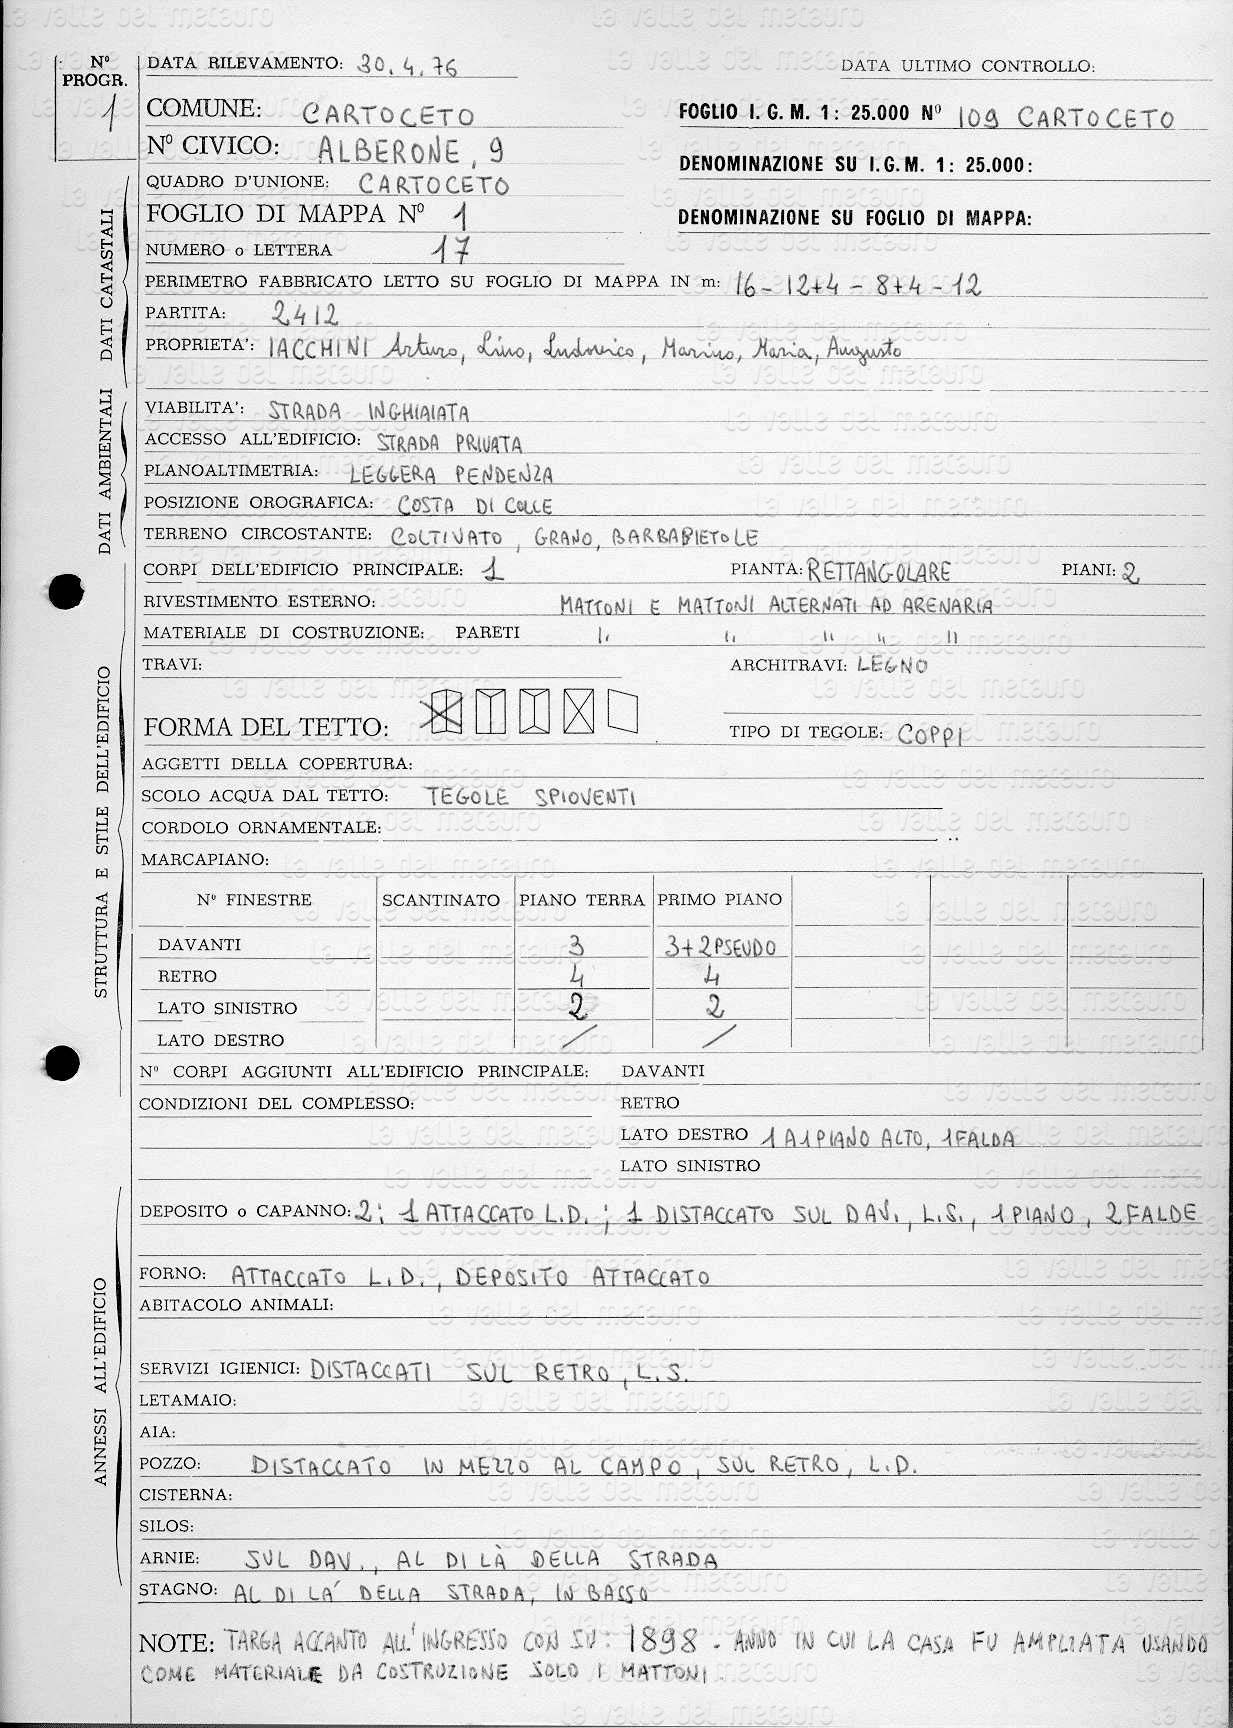 Nº PROGR. 1
DATA RILEVAMENTO: 30.4.76
DATA ULTIMO CONTROLLO:
COMUNE: CARTOCETO
FOGLIO I.G.M. 1: 25.000 Nº 109 CARTOCETO
Nº CIVICO: ALBERONE, 9
DENOMINAZIONE SU I.G.M. 1: 25.000:
QUADRO D'UNIONE: CARTOCETO
FOGLIO DI MAPPA Nº 1
DENOMINAZIONE SU FOGLIO DI MAPPA:
NUMERO o LETTERA 17
DATI CATASTALI
PERIMETRO FABBRICATO LETTO SU FOGLIO DI MAPPA IN m: 16-12+4-8+4-12
PARTITA: 2412
PROPRIETA': IACCHINI Arturo, Lino, Ludovico, Marino, Maria, Augusto
DATI AMBIENTALI
VIABILITA': STRADA INGHIAIATA
ACCESSO ALL'EDIFICIO: STRADA PRIVATA
PLANOALTIMETRIA: LEGGERA PENDENZA
POSIZIONE OROGRAFICA: COSTA DI COLLE
TERRENO CIRCOSTANTE: COLTIVATO, GRANO, BARBABIETOLE
STRUTTURA E STILE DELL'EDIFICIO
CORPI DELL'EDIFICIO PRINCIPALE: 1 PIANTA: RETTANGOLARE PIANI: 2
RIVESTIMENTO ESTERNO: MATTONI E MATTONI ALTERNATI AD ARENARIA
MATERIALE DI COSTRUZIONE: PARETI " " " " "
TRAVI: ARCHITRAVI: LEGNO
FORMA DEL TETTO: TIPO DI TEGOLE: COPPI
AGGETTI DELLA COPERTURA:
SCOLO ACQUA DAL TETTO: TEGOLE SPIOVENTI
CORDOLO ORNAMENTALE:
MARCAPIANO:
Nº FINESTRE SCANTINATO PIANO TERRA PRIMO PIANO
DAVANTI 3 3+2PSEUDO
RETRO 4 4
LATO SINISTRO 2 2
LATO DESTRO / /
Nº CORPI AGGIUNTI ALL'EDIFICIO PRINCIPALE: DAVANTI
CONDIZIONI DEL COMPLESSO: RETRO
LATO DESTRO 1 A 1 PIANO ALTO, 1 FALDA
LATO SINISTRO
ANNESSI ALL'EDIFICIO
DEPOSITO o CAPANNO: 2; 1 ATTACCATO L.D.; 1 DISTACCATO SUL DAV., L.S., 1 PIANO, 2 FALDE
FORNO: ATTACCATO L.D., DEPOSITO ATTACCATO
ABITACOLO ANIMALI:
SERVIZI IGIENICI: DISTACCATI SUL RETRO, L.S.
LETAMAIO:
AIA:
POZZO: DISTACCATO IN MEZZO AL CAMPO, SUL RETRO, L.D.
CISTERNA:
SILOS:
ARNIE: SUL DAV., AL DI LÀ DELLA STRADA
STAGNO: AL DI LA' DELLA STRADA, IN BASSO
NOTE: TARGA ACCANTO ALL'INGRESSO CON SU: 1898. ANNO IN CUI LA CASA FU AMPLIATA USANDO
COME MATERIALE DA COSTRUZIONE SOLO I MATTONI.
la valle del metauro